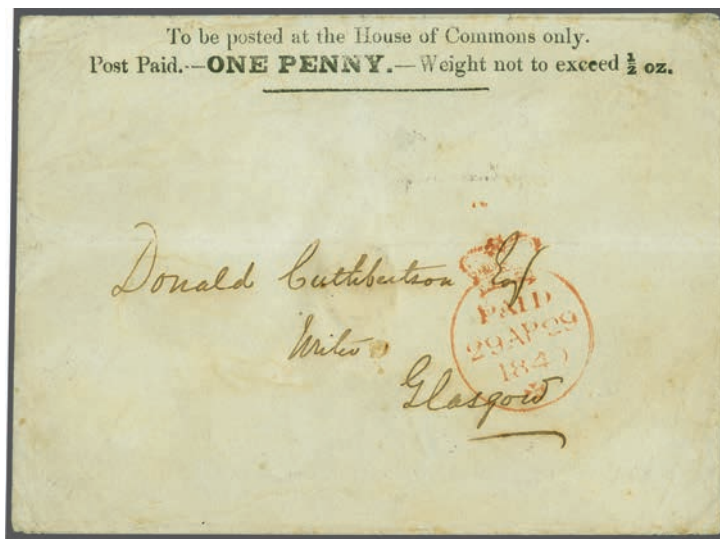 To be posted at the House of Commons only.
Post Paid.—ONE PENNY.—Weight not to exceed ½ oz.
Donald Cuthbertson Esqr
Writer
Glasgow
PAID
29 AP 29
1840